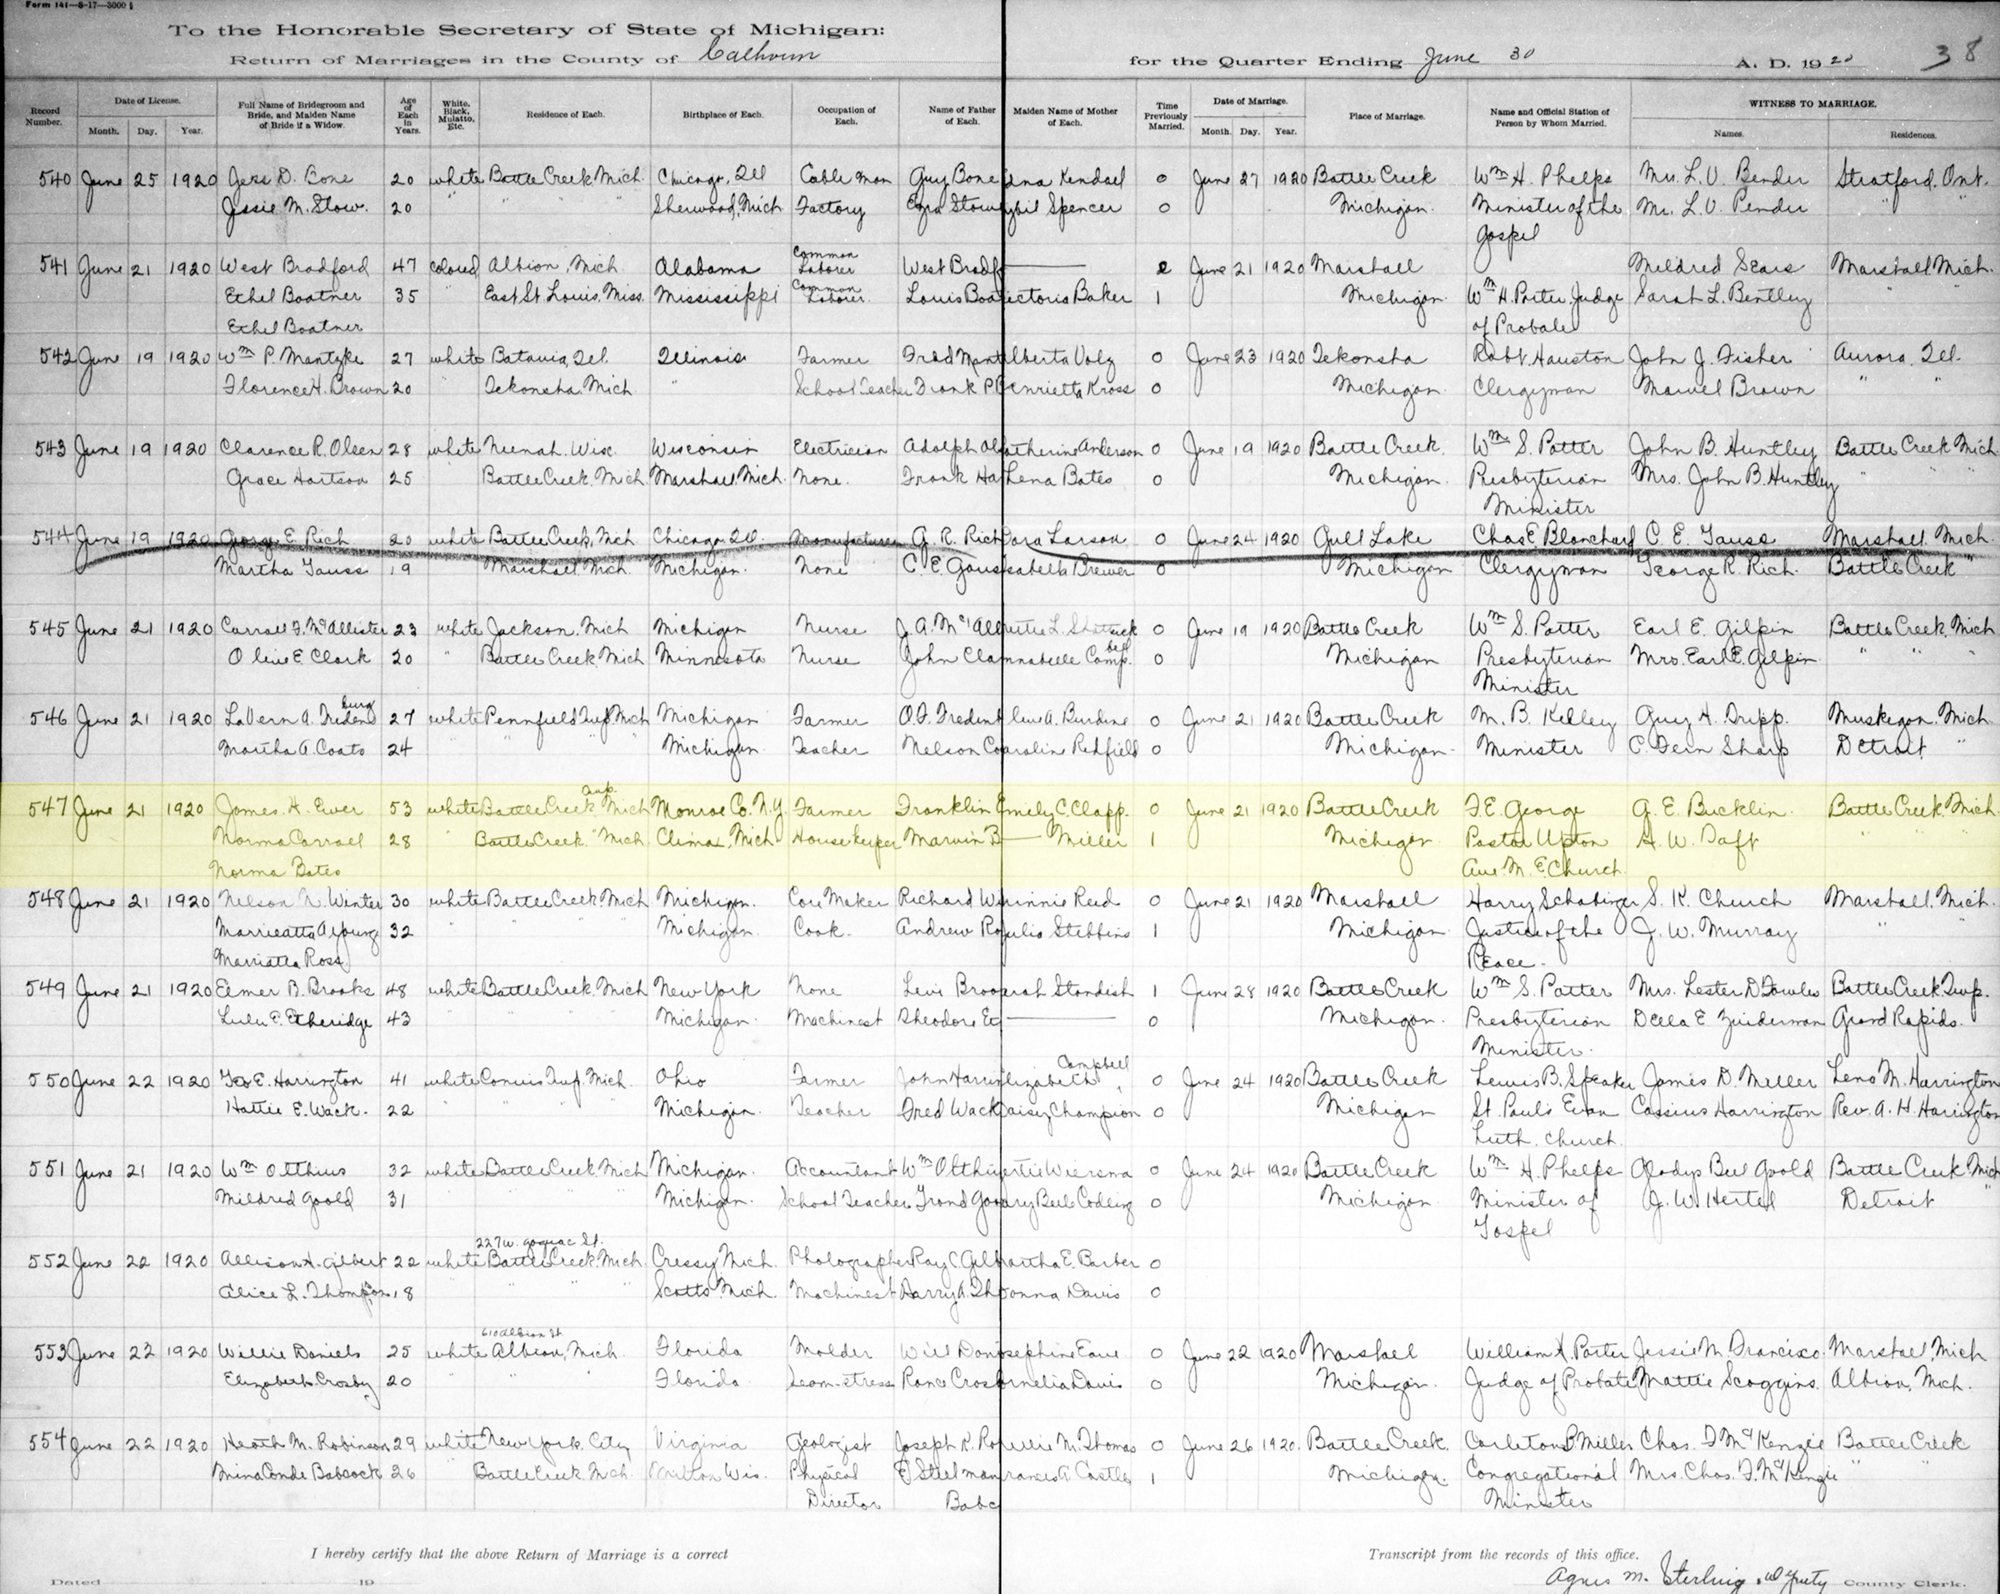 Form 141—8-17—3000
To the Honorable Secretary of State of Michigan:
Return of Marriages in the County of Calhoun for the Quarter Ending June 30 A. D. 1920 38
Record Number. Date of License. Month. Day. Year. Full Name of Bridegroom and Bride, and Maiden Name of Bride if a Widow. Age of Each in Years. White, Black, Mulatto, Etc. Residence of Each. Birthplace of Each. Occupation of Each. Name of Father of Each. Maiden Name of Mother of Each. Time Previously Married. Date of Marriage. Month. Day. Year. Place of Marriage. Name and Official Station of Person by Whom Married. WITNESS TO MARRIAGE. Names. Residences.
540 June 25 1920 Jess D. Bone 20 white Battle Creek Mich. Chicago, Ill Cable man Guy Bone Edna Kendall 0 June 27 1920 Battle Creek Wm H. Phelps Mrs. L. V. Bender Stratford, Ont.
Jessie M. Stow. 20 " " " Sherwood, Mich Factory Ezra Stow Sybil Spencer 0 Michigan. Minister of the Mr. L. V. Pender " "
Gospel
541 June 21 1920 West Bradford 47 colored Albion, Mich Alabama Common Laborer West Bradf 2 June 21 1920 Marshall Mildred Sears Marshall Mich.
Ethel Boatner 35 " East St Louis, Miss. Mississippi Common Laborer. Louis Boa Victoria Baker 1 Michigan. Wm H. Porter, Judge Sarah L. Bentley " "
Ethel Boatner of Probate
542 June 19 1920 Wm P. Mantzke 27 white Batavia, Ill. Illinois Farmer Fred Mant Alberta Volz 0 June 23 1920 Tekonsha Robt. Hauston John J. Fisher Aurora, Ill.
Florence H. Brown 20 " Tekonsha, Mich " School Teacher Frank P. B Henrietta Kross 0 Michigan Clergyman Brown " "
543 June 19 1920 Clarence R. Olsen 28 white Neenah, Wisc. Wisconsin Electrician Adolph Ol Catherine Anderson 0 June 19 1920 Battle Creek. Wm. S. Potter John B. Huntley Battle Creek Mich
Grace Hartson 25 Battle Creek, Mich Marshall, Mich. None. Frank Ha Lena Bates 0 Michigan. Presbyterian Mrs. John B. Huntley " "
Minister
544 June 19 1920 George E. Rich 20 white Battle Creek, Mich Chicago, Ill. Manufacturer G. R. Rich Dora Larson 0 June 24 1920 Gull Lake Chas E. Blanchard C. E. Gauss Marshall, Mich.
Martha Gauss 19 Marshall, Mich. Michigan. None C. E. Gaus Isabella Brewer 0 Michigan Clergyman George R. Rich. Battle Creek "
545 June 21 1920 Carroll F. McAllister 23 white Jackson, Mich Michigan Nurse J. A. McAll 0 June 19 1920 Battle Creek Wm S. Potter Earl E. Gilpin Battle Creek, Mich
Olive E. Clark 20 " Battle Creek, Mich Minnesota Nurse John Cla Annabelle Campbell 0 Michigan Presbyterian Mrs. Earl E. Gilpin " "
Minister
546 June 21 1920 LaVern A. Fredenburg 27 white Pennfield Twp. Mich Michigan Farmer O. F. Fredenb Olive A. Burdine 0 June 21 1920 Battle Creek M. B. Kelley Guy H. Tripp. Muskegon, Mich
Martha A. Coats 24 " " " Michigan. Teacher Nelson Co Caroline Redfield 0 Michigan. Minister C. Fern Sharp Detroit "
547 June 21 1920 James H. Ewer 53 white Battle Creek Twp. Mich Monroe Co. N.Y. Farmer Franklin E Emily C. Clapp. 0 June 21 1920 Battle Creek F. E. George G. E. Bucklin. Battle Creek, Mich.
Norma Carroll 28 " Battle Creek, Mich. Climax, Mich Housekeeper Marvin B Miller 1 Michigan. Pastor Upton H. W. Daft " "
Norma Bates Ave. M. E. Church.
548 June 21 1920 Nelson A. Winter 30 white Battle Creek Mich Michigan. Core Maker Richard Wi Minnie Reed 0 June 21 1920 Marshall Harry Schabinger S. K. Church Marshall, Mich.
Marrieatta A Young 32 " " " Michigan. Cook. Andrew Ro Julia Stebbins 1 Michigan Justice of the J. W. Murray "
Marriatta Ross. Peace.
549 June 21 1920 Elmer B. Brooks 48 white Battle Creek, Mich New York None Levi Broo Sarah Standish 1 June 28 1920 Battle Creek Wm S. Potter Mrs. Lester D. Battle Creek Twp.
Lulu C. Etheridge 43 " " " Michigan. Machinest Theodore Et 0 Michigan. Presbyterian Della E. Zuiderman Grand Rapids.
Minister.
550 June 22 1920 Geo E. Harrington 41 white Convis Twp. Mich. Ohio Farmer John Harrin Elizabeth Campbell 0 June 24 1920 Battle Creek Lewis B. Speaker James D. Miller Lena M. Harrington
Hattie E. Wack. 22 " " " Michigan. Teacher Fred Wack Daisy Champion 0 Michigan St. Paul's Evan Cassius Harrington Rev. A. H. Harrington
Luth. Church.
551 June 21 1920 Wm Olthius 32 white Battle Creek, Mich Michigan. Accountant Wm Olthi Wiersma 0 June 24 1920 Battle Creek Wm H. Phelps Gladys Bell Goold Battle Creek Mich
Mildred Goold 31 " " " Michigan. School Teacher Frand Goo Mary Bell Codling 0 Michigan. Minister of J. W. Hertel Detroit "
Gospel
552 June 22 1920 Allison H. Gilbert 22 white 227 W. Goguac St. Battle Creek, Mich. Cressy Mich. Photographer Ray C. Gilb Martha E. Barber 0
Alice L. Thompson 18 " " " Scotts, Mich. Machinest Harry A. Th Donna Davis 0
553 June 22 1920 Willie Daniels 25 white 610 Albion St. Albion, Mich. Florida Molder Will Dani Josephine 0 June 22 1920 Marshall William H. Porter Jessie M. Francisco. Marshall, Mich
Elizabeth Crosby 20 " " " Florida. Seam-stress Rance Cros Cornelia Davis 0 Michigan. Judge of Probate Mattie Scoggins. Albion, Mich.
554 June 22 1920 Heath M. Robinson 29 white New York City Virginia Geologist Joseph K. Ro Nellie M. Thomas 0 June 26 1920. Battle Creek. Carleton B. Miller Chas. F. McKenzie Battle Creek
Mina Conde Babcock 26 " Battle Creek, Mich. Milton Wis. Physical E Steelman Frances A. Castle 1 Michigan. Congregational Mrs. Chas. F. McKenzie " "
Director Babc Minister
I hereby certify that the above Return of Marriage is a correct Transcript from the records of this office.
Dated 19 Agnes M. Sterling, Deputy County Clerk.